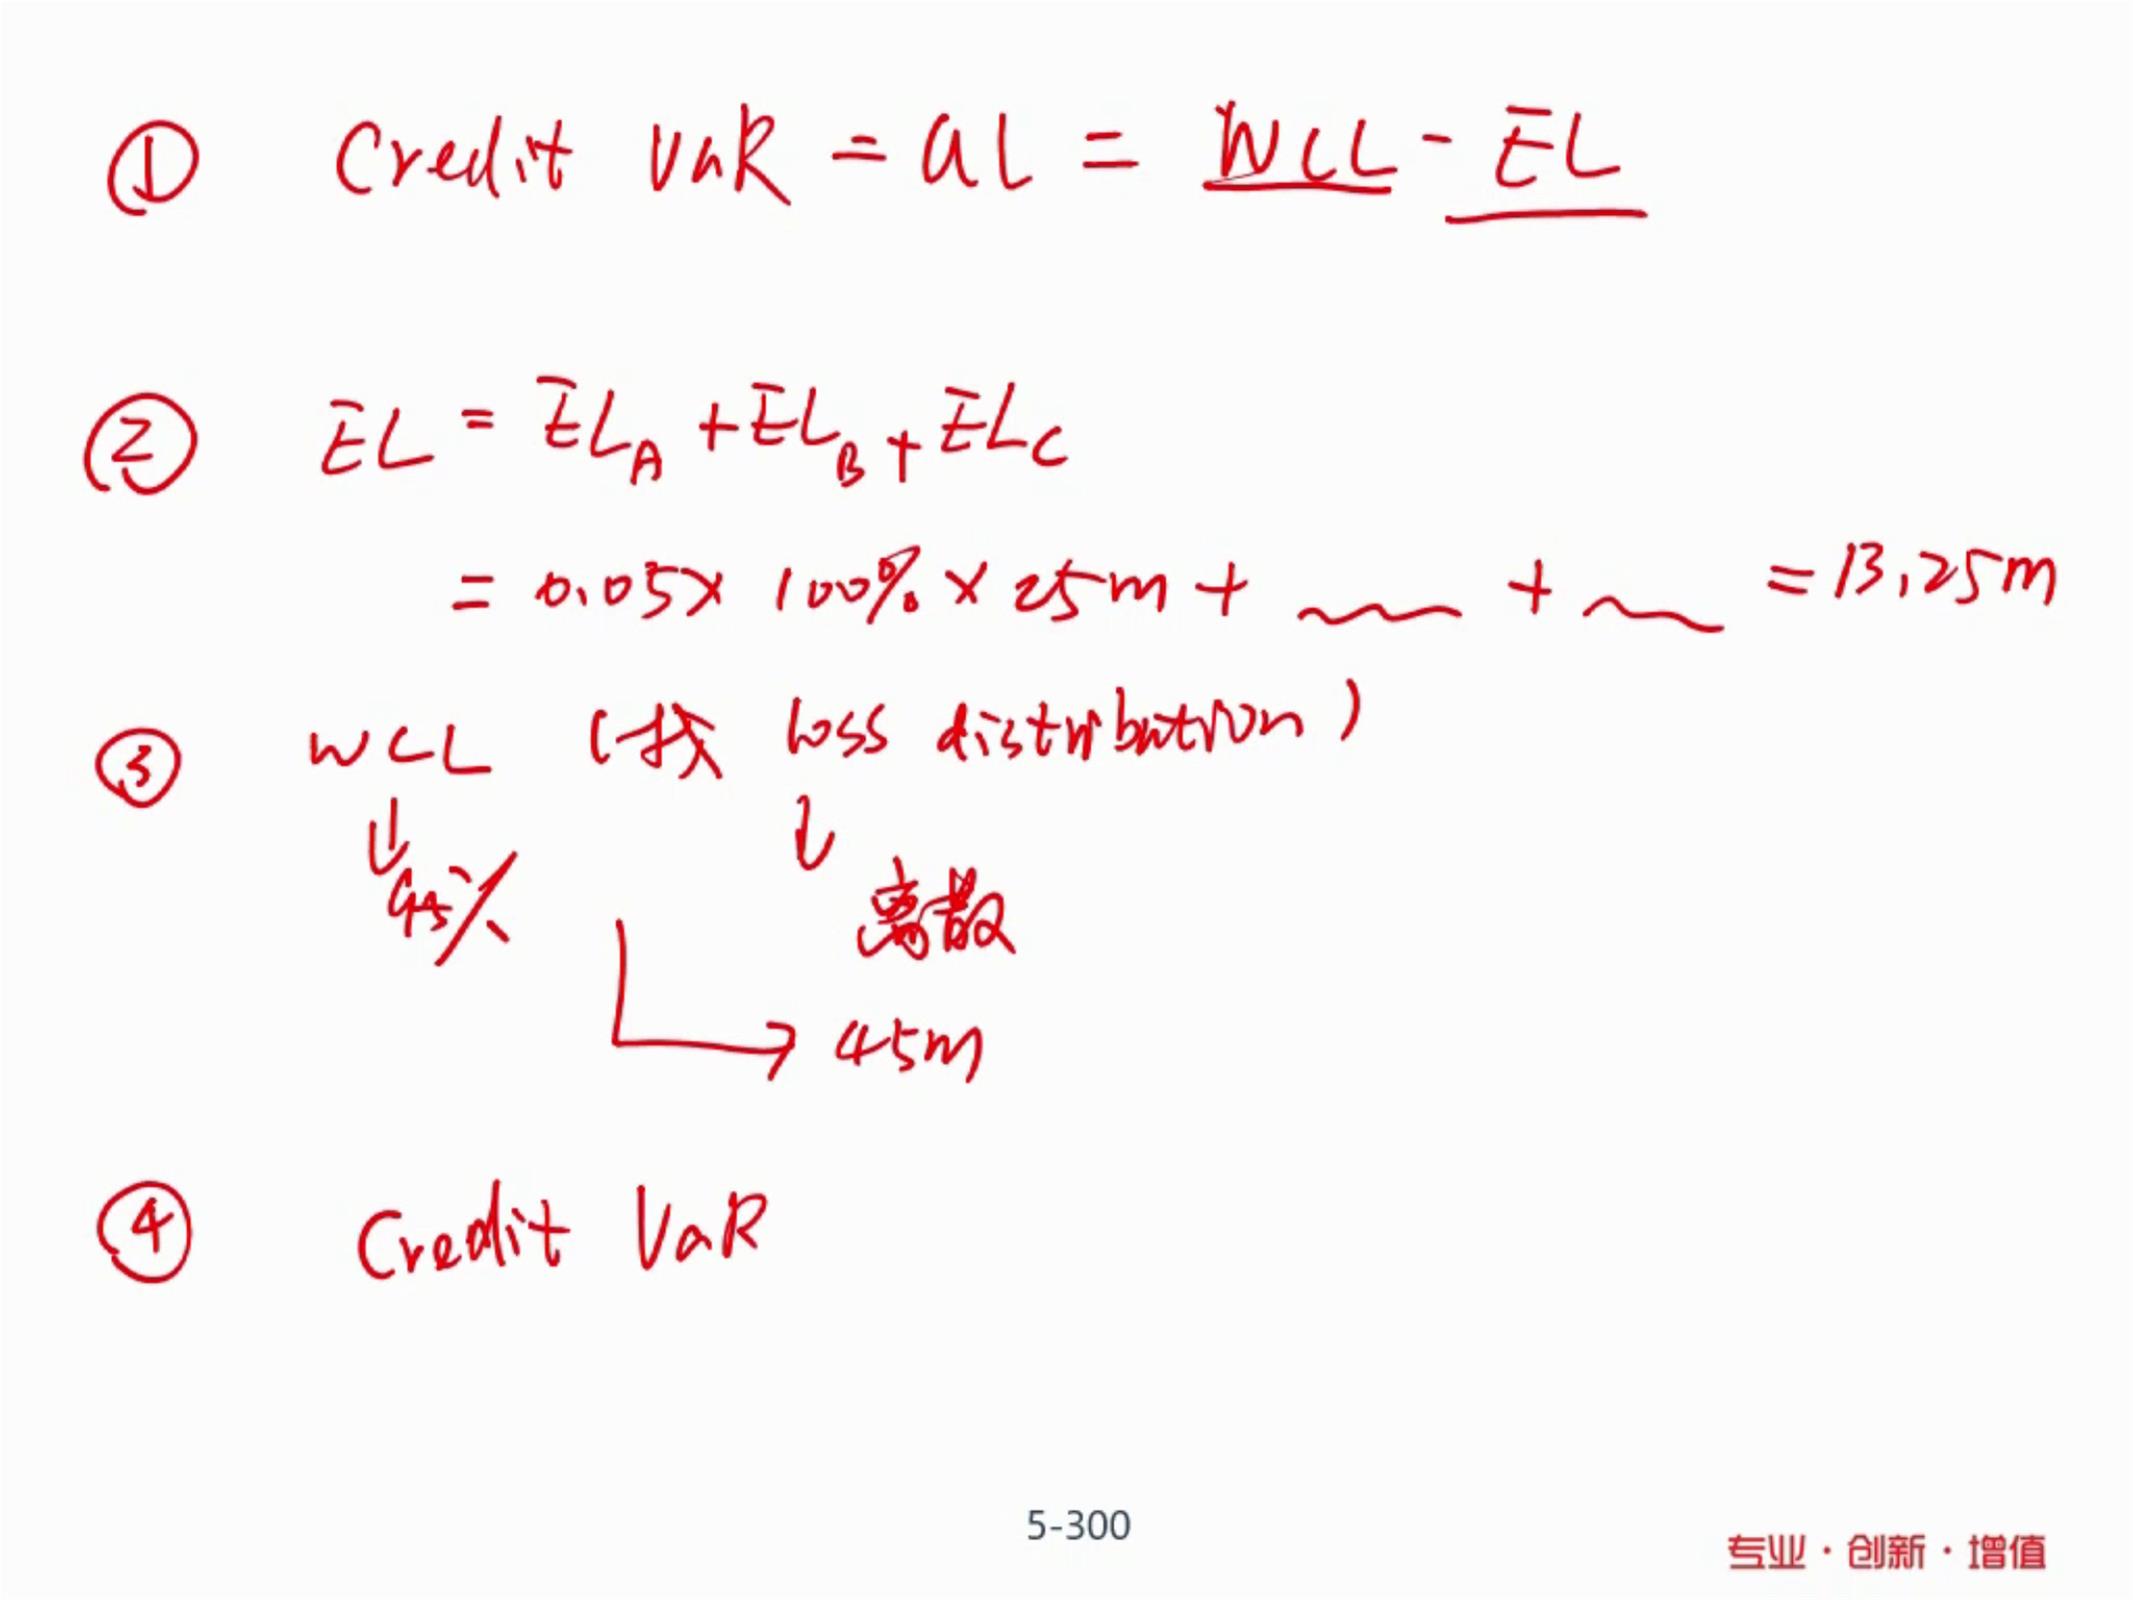 ① Credit VaR = UL = WCL - EL
② EL = ELA + ELB + ELC
= 0.05 × 100% × 25m + + = 13.25m
③ WCL (找 loss distribution)
95% 离散
45m
④ Credit VaR
5-300
专业·创新·增值